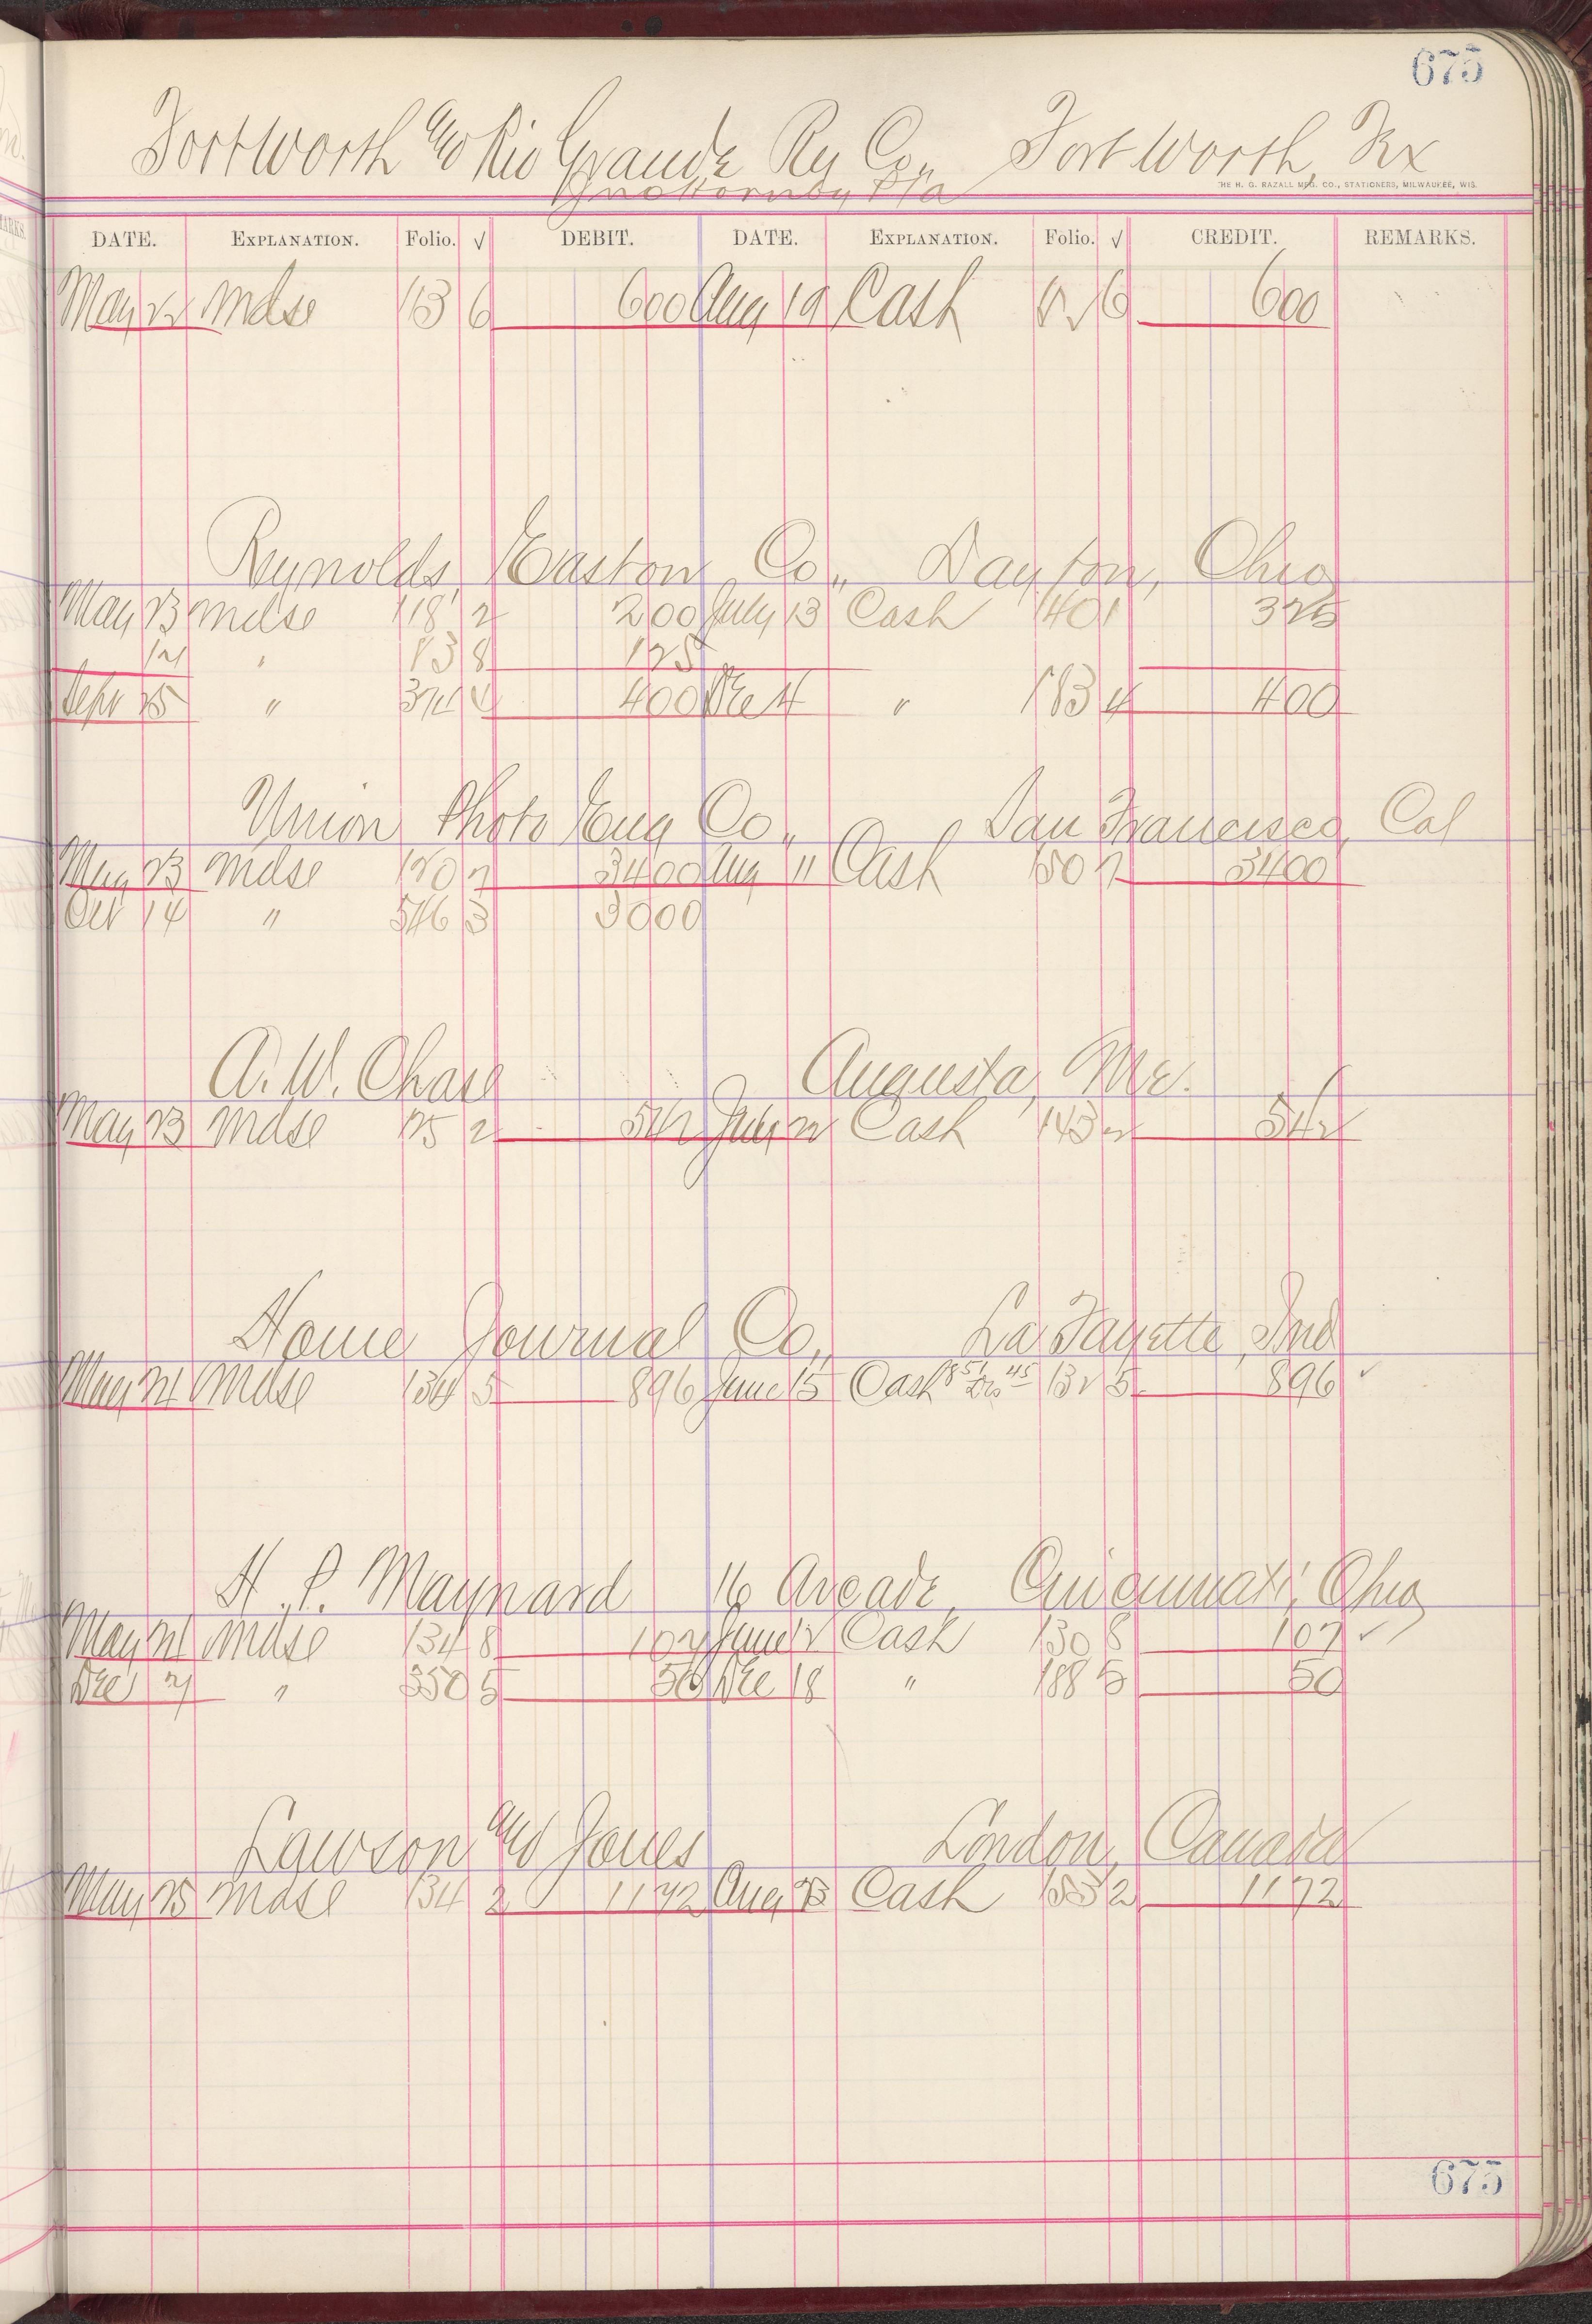 675
Fort Worth and Rio Grande Ry Co., Fort Worth, Tex
Jno Hornby P/a
THE H. G. RAZALL MFG. CO., STATIONERS, MILWAUKEE, WIS.
DATE. EXPLANATION. Folio. √ DEBIT. DATE. EXPLANATION. Folio. √ CREDIT. REMARKS.
May 22 Mdse 113 6 600 Aug 19 Cash 6 600
Reynolds, Easton Co., Dayton, Ohio
May 23 Mdse 118 2 200 July 13 Cash 140 1 325
" 138 125
Sept 25 " 374 400 Dec 4 " 183 4 400
Union Photo Eng Co., San Francisco, Cal
May 23 Mdse 120 2 3400 Aug 11 Cash 150 2 3400
Oct 14 " 546 3 3000
A. W. Chase Augusta, Me.
May 23 Mdse 125 2 542 July 22 Cash 143 2 542
Home Journal Co., La Fayette, Ind
May 24 Mdse 134 5 896 June 15 Cash 851 Dis 45 132 5 896 ✓
H. P. Maynard 16 Arcade, Cincinnati, Ohio
May 24 Mdse 134 8 107 June 12 Cash 130 8 107 ✓
Dec " 350 5 50 Dec 18 " 188 5 50
Lawson and Jones London, Canada
May 25 Mdse 134 2 1172 Aug 23 Cash 153 2 1172
675